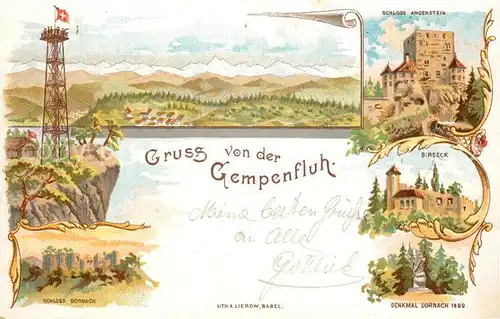 SCHLOSS ANGENSTEIN
Gruss von der
Gempenfluh.
BIRSECK
Meine besten Grüsse
an Alle
Gottlieb
SCHLOSS DORNACH
LITH. A. LIEROW, BASEL.
DENKMAL DORNACH 1499